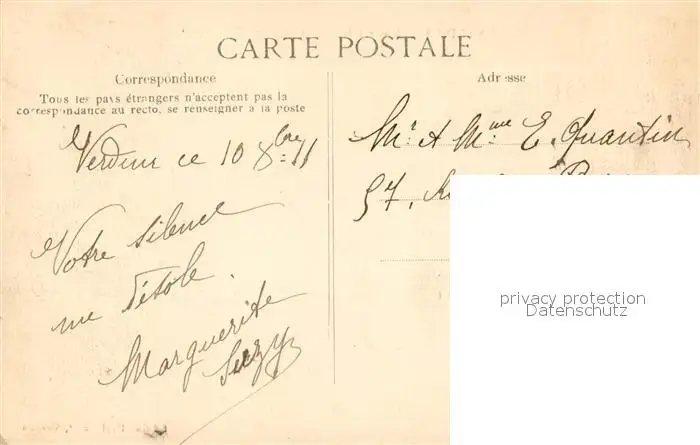 CARTE POSTALE
Correspondance
Tous les pays étrangers n'acceptent pas la
correspondance au recto, se renseigner à la poste
Verdun ce 10 8bre 11
Votre silence
me désole.
Marguerite
Suzy
Adresse
Mr. et Mme E. Quantin
57,
privacy protection
Datenschutz